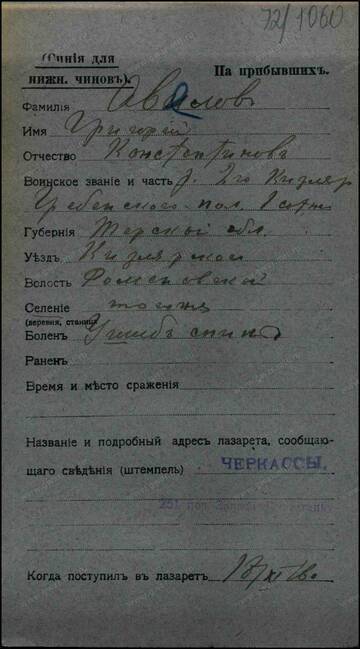 72/1060
(Синія для
нижн. чиновъ).
На прибывшихъ.
Фамилія Авилов
Имя Григорій
Отчество Константиновъ
Воинское званіе и часть 2го Кизляр
Гребенского пол. 1 сотн
Губернія Терской обл.
Уѣздъ Кизлярской
Волость
Селеніе тоже
(деревня, станица)
Боленъ Ушибъ спины
Раненъ
Время и мѣсто сраженія
Названіе и подробный адресъ лазарета, сообщаю-
щаго свѣдѣнія (штемпель) ЧЕРКАССЫ.
251
Когда поступилъ въ лазаретъ